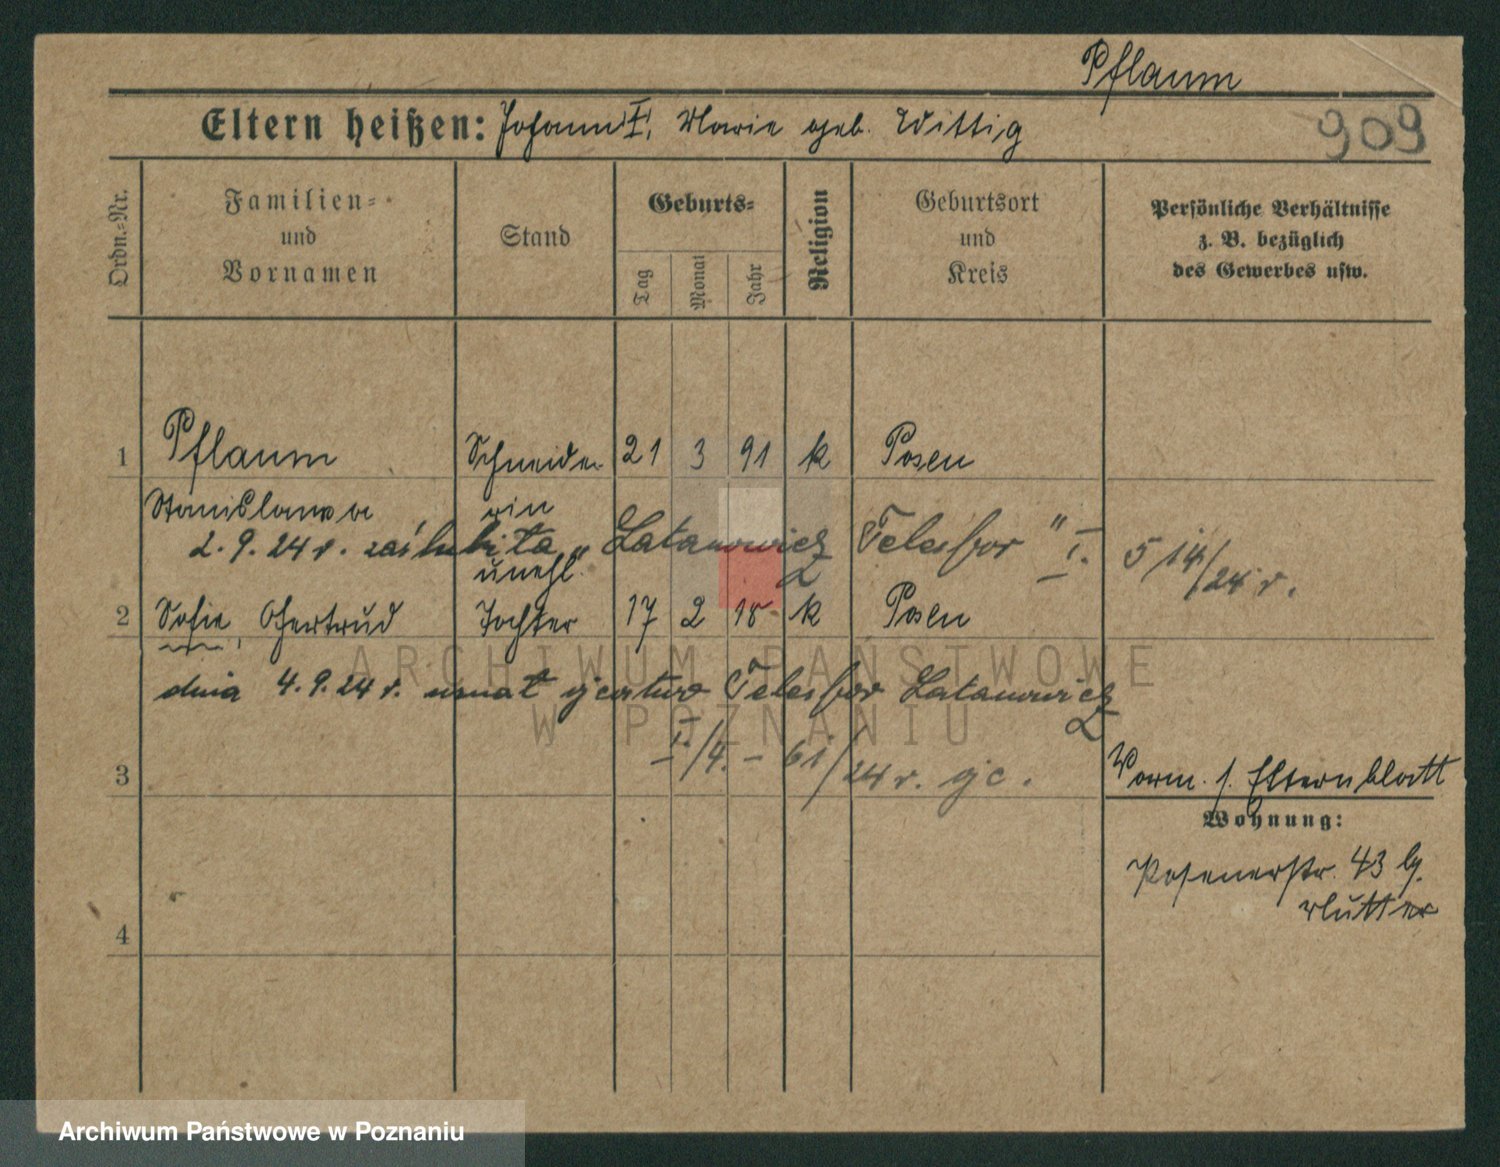 Pflaum
Eltern heißen: Johann I, Marie geb. Wittig
909
Ordn.=Nr.
Familien= und Vornamen
Stand
Geburts=
Tag
Monat
Jahr
Religion
Geburtsort und Kreis
Persönliche Verhältnisse
z. B. bezüglich
des Gewerbes usw.
1 Pflaum Schneide- 21 3 91 k Posen
Stanislawa rin
2. 9. 24 r. zaślubiła „Latanowicz Telesfor" I. 5 14/24 r.
unehl.
2 Sofie, Gertrud Tochter 17 2 18 k Posen
dnia 4.9.24 r. uznał ojcostwo Telesfor Latanowicz
I/4. - 61/24 r.
3
Vorm. s. Elternblatt
Wohnung:
Posenerstr. 43 b.
Mutter
4
ARCHIWUM PAŃSTWOWE
W POZNANIU
Archiwum Państwowe w Poznaniu